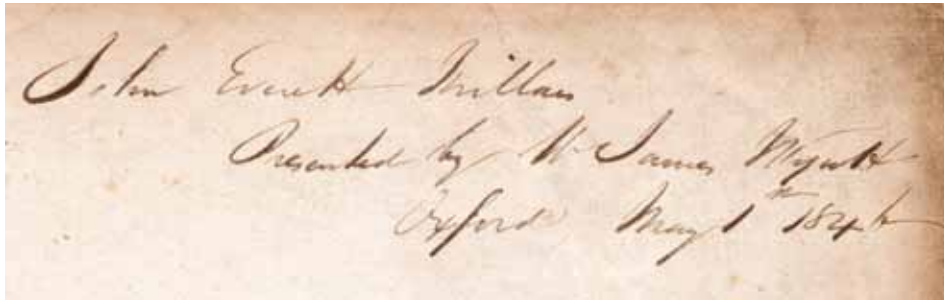 John Everett Millais
Presented by Mr James Wyatt
Oxford May 1th 184